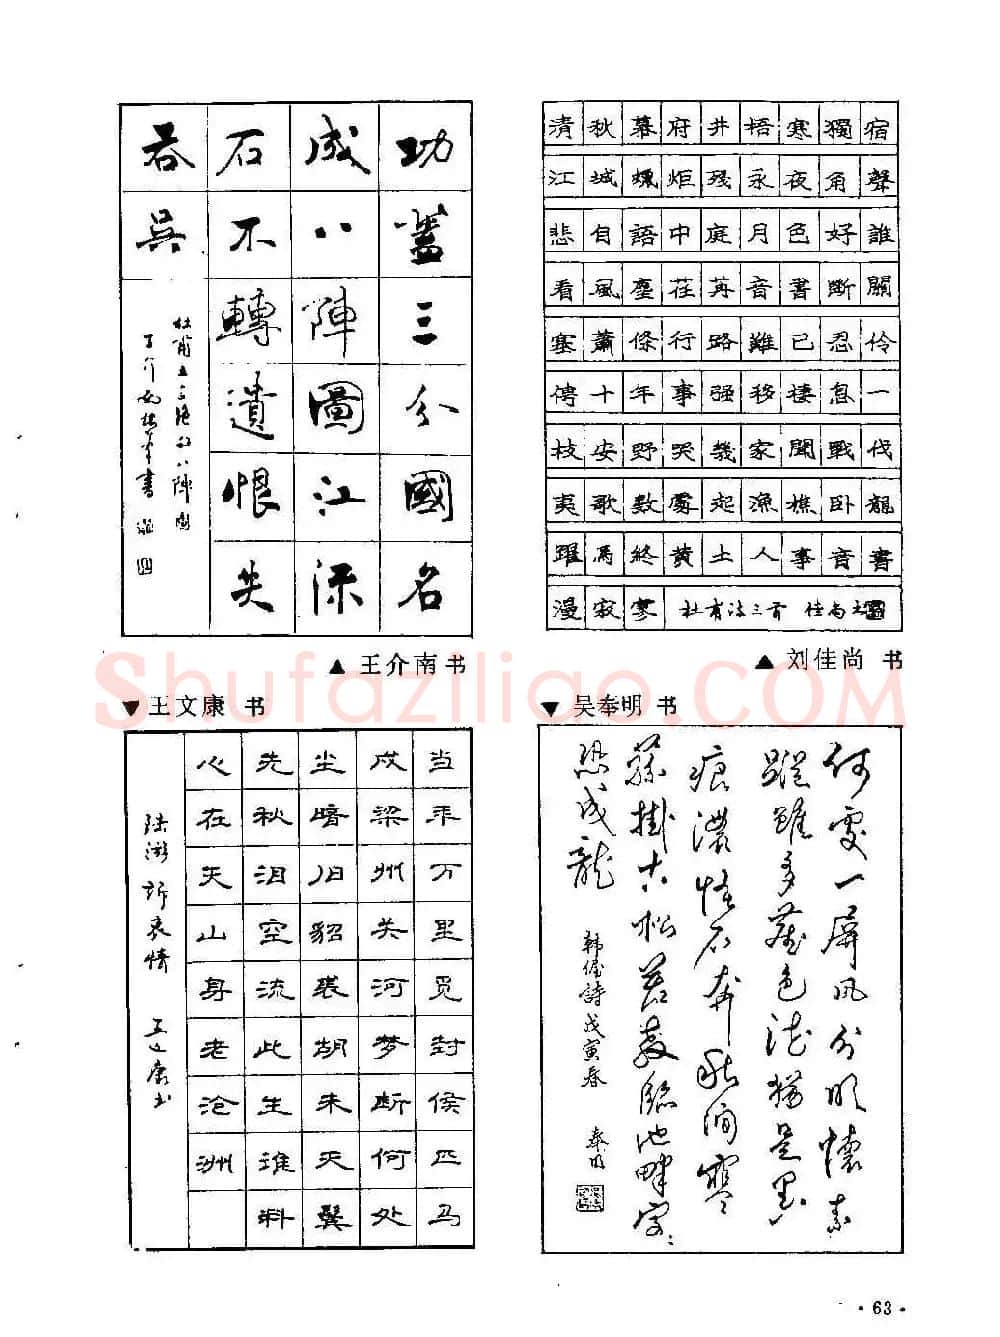 功蓋三分國名
成八陣圖江流
石不轉遺恨失
吞吳
杜甫五言絶句八陣圖
王介南 書
清秋幕府井梧寒獨宿
江城蠟炬残永夜角聲
悲自語中庭月色好誰
看風塵荏苒音書断關
塞蕭條行路難已忍伶
俜十年事强移棲息一
枝安野哭幾家聞戰伐
夷歌数處起漁樵卧龍
躍馬終黄土人事音書
漫寂寥 杜甫诗二首 佳尚书
▲王介南书
▲刘佳尚 书
▼王文康 书
▼吴奉明 书
Shufaziliao.COM
当年万里觅封侯匹马
戍梁州关河梦断何处
尘暗旧貂裘胡未灭鬓
先秋泪空流此生谁料
心在天山身老沧洲
陆游诉衷情 王文康书
何處一屏風分明懷素
蹤雖多塵色染猶是墨
痕濃怪石奔秋澗寒
藤掛古松若教臨池畔字〻
恐成龍
韩偓詩戊寅春 奉明
·63·